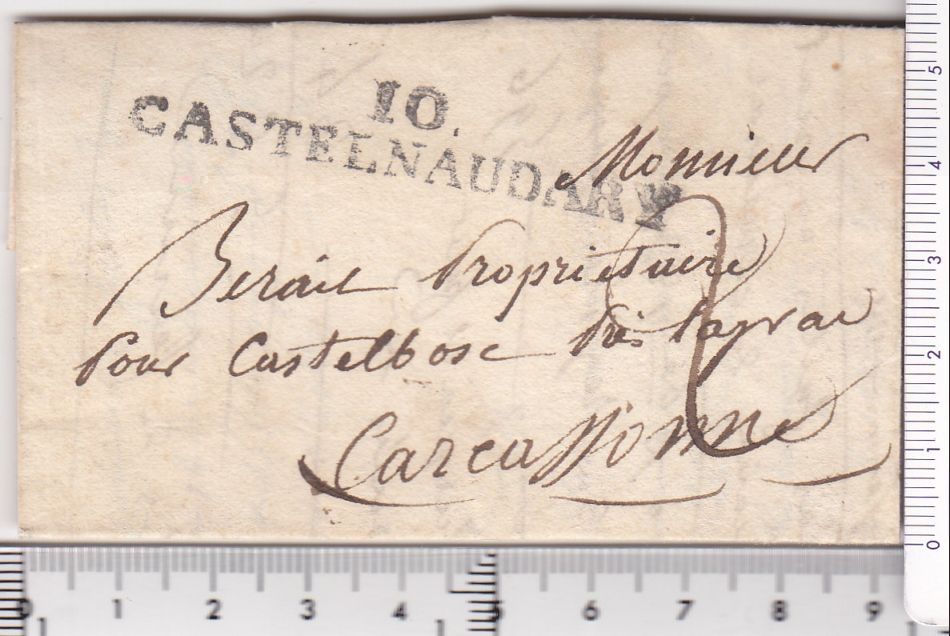 10.
CASTELNAUDARY
Monsieur
Berail Propriétaire
Pour Castelbosc Près Payrac
Carcassonne
2
5
4
3
2
1
0
0 1 2 3 4 5 6 7 8 9
1 1